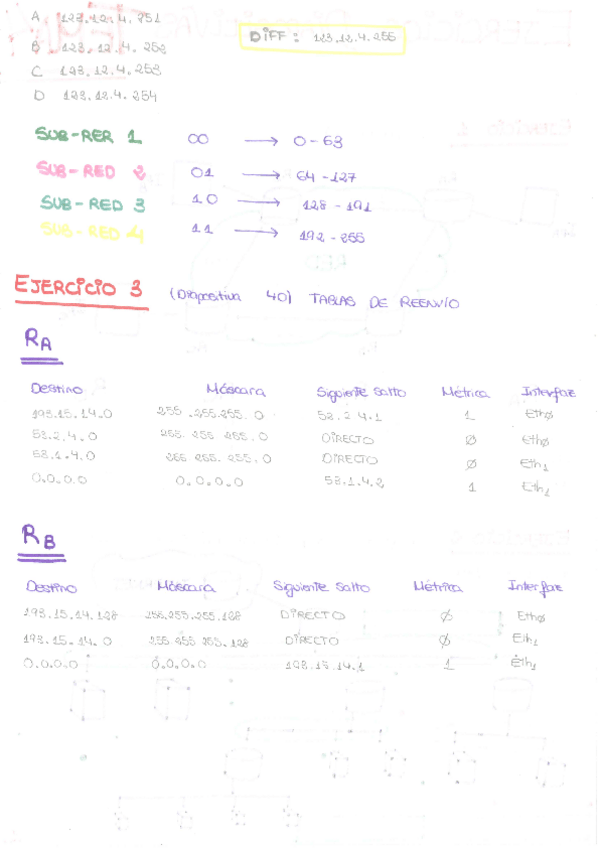 A 123.12.4.251
B 123.12.4.252
C 123.12.4.253
D 123.12.4.254
DIFF: 123.12.4.255
SUB-RER 1 00 → 0-63
SUB-RED 2 01 → 64-127
SUB-RED 3 10 → 128-191
SUB-RED 4 11 → 192-255
EJERCICIO 3 (Diapositiva 40) TABLAS DE REENVÍO
RA
Destino Máscara Siguiente Salto Métrica Interfaz
193.15.14.0 255.255.255.0 53.2.4.1 1 Ethø
53.2.4.0 255.255.255.0 DIRECTO Ø Ethø
53.1.4.0 255.255.255.0 DIRECTO Ø Eth1
0.0.0.0 0.0.0.0 53.1.4.2 1 Eth1
RB
Destino Máscara Siguiente Salto Métrica Interfaz
193.15.14.128 255.255.255.128 DIRECTO Ø Ethø
193.15.14.0 255.255.255.128 DIRECTO Ø Eth1
0.0.0.0 0.0.0.0 193.15.14.1 1 Eth1